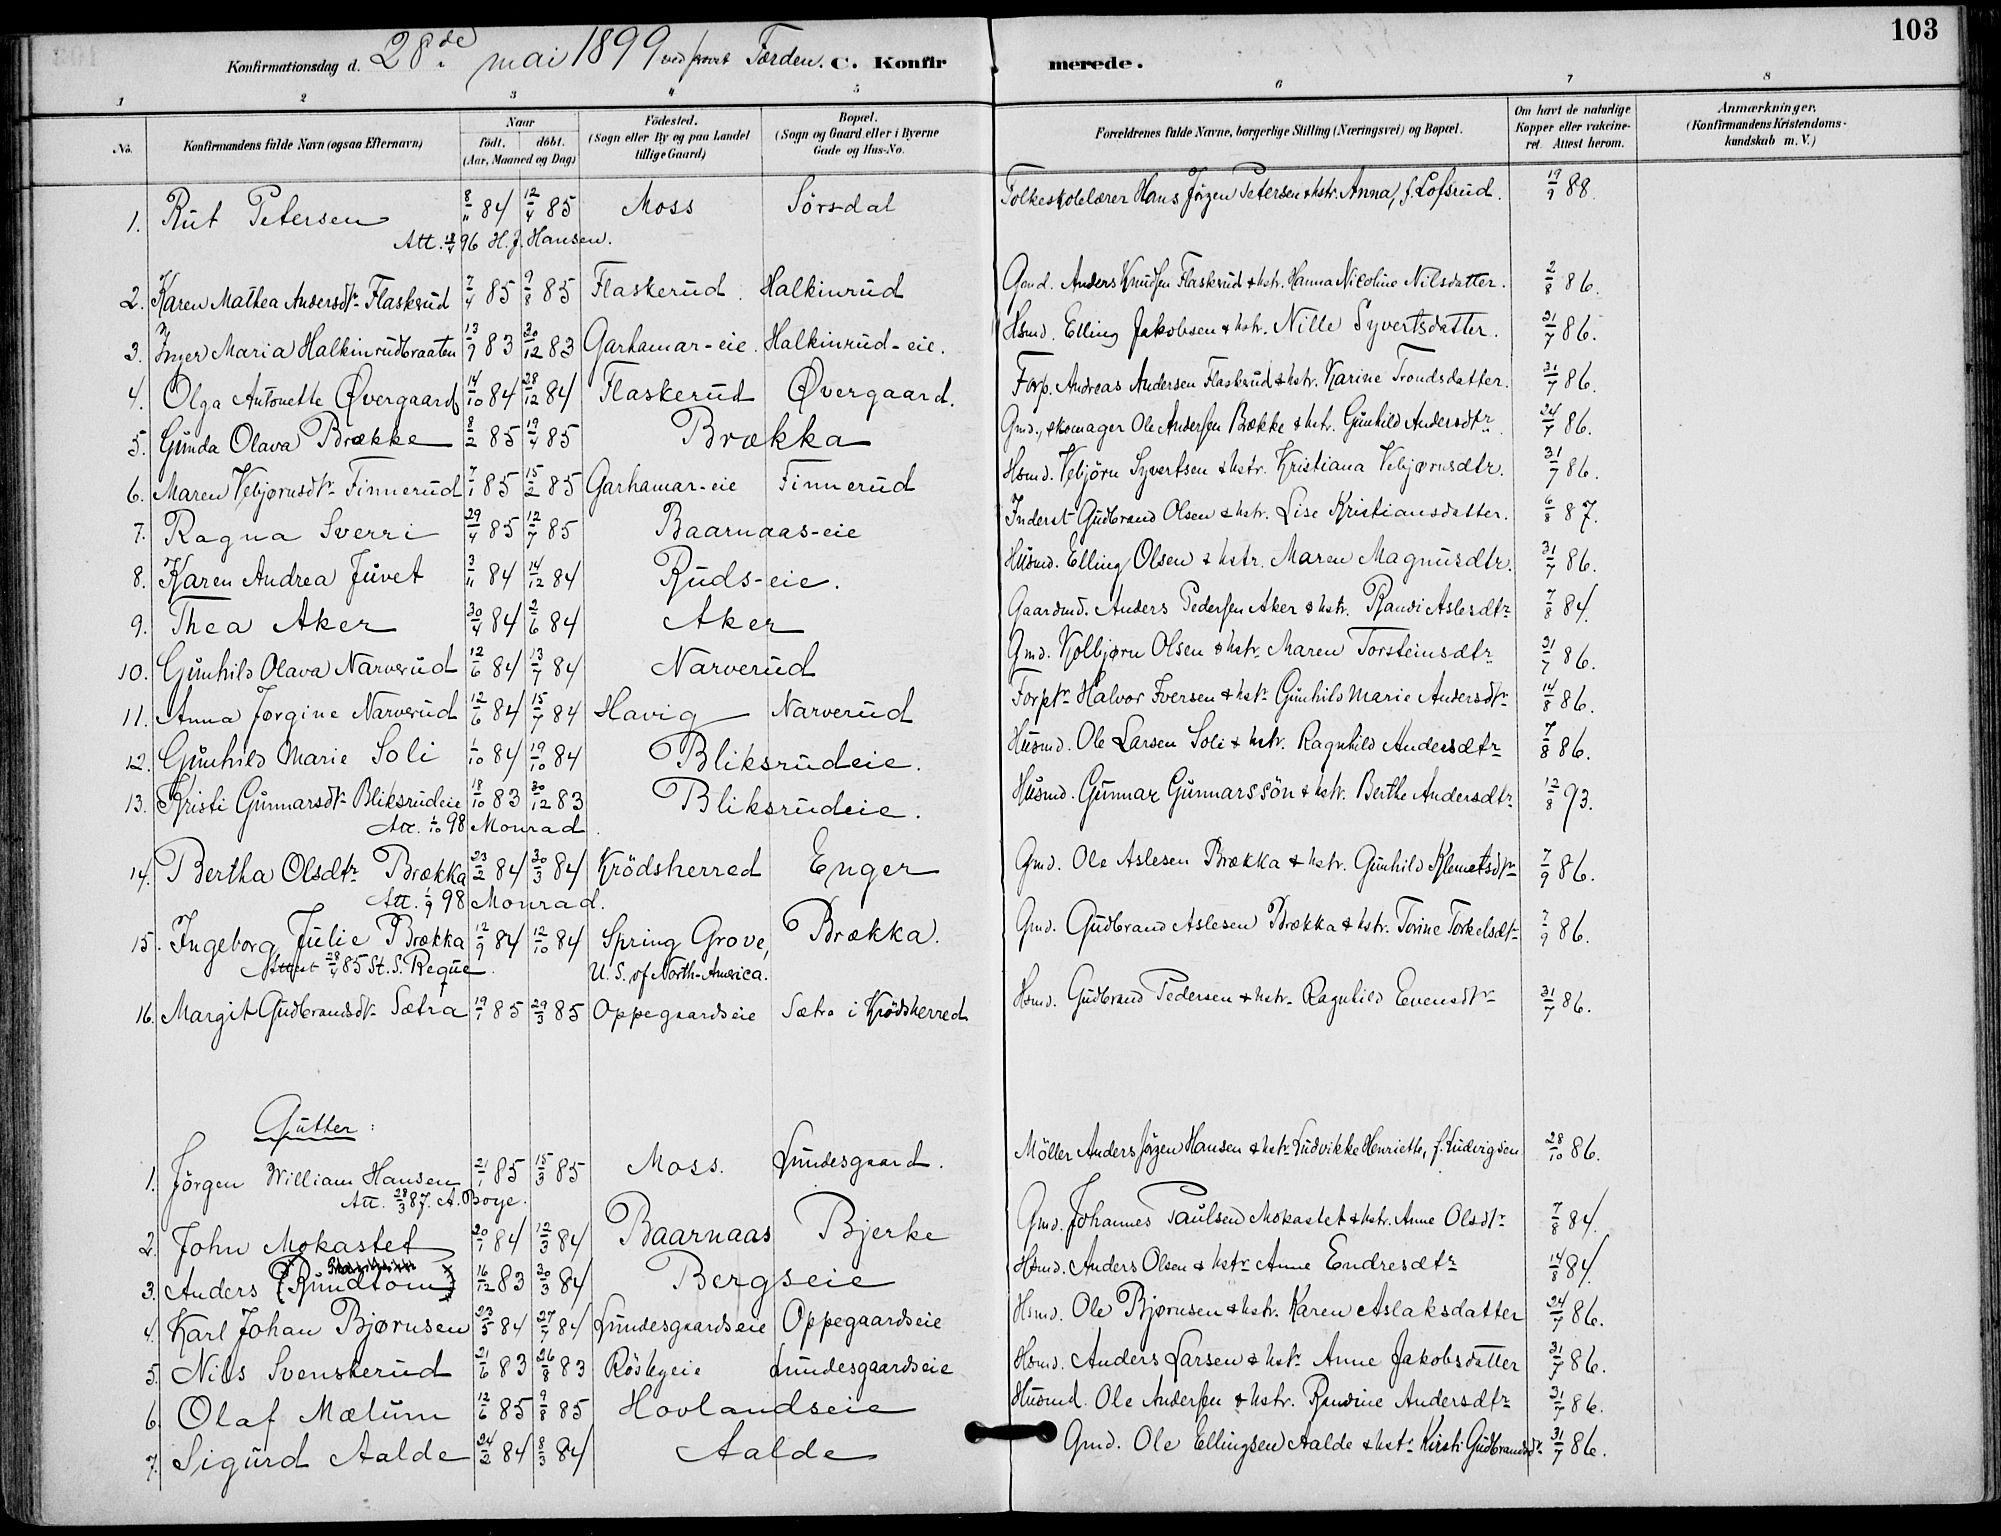 103
Konfirmationsdag d. 28de mai 1899 ved Torden. C. Konfirmerede.
1 2 3 4 5 6 7 8
No. Konfirmandens fulde Navn (ogsaa Efternavn) Naar födt. döbt. (Aar, Maaned og Dag) Födested. (Sogn eller By og paa Landet tillige Gaard) Bopæl. (Sogn og Gaard eller i Byerne Gade og Hus-No. Forældrenes fulde Navne, borgerlige Stilling (Næringsvei) og Bopæl. Om havt de naturlige Kopper eller vakcineret. Attest herom. Anmærkninger. (Konfirmandens Kristendomskundskab m. V.)
1. Rut Petersen 8/11 84 12/4 85 Moss Sörsdal Folkeskolelærer Hans Jörgen Petersen & hstr. Anna, f. Lofsrud. 19/9 88.
Att. 18/4 96 H. J. Hansen.
2. Karen Mathea Andersdtr Flaskrud 7/4 85 9/8 85 Flaskerud Halkinrud Gmd. Anders Knudsen Flaskrud & hstr. Hanna Nicoline Nilsdatter. 2/8 86.
3. Inger Maria Halkinrudbraaten 13/9 83 30/12 83 Garhamar-eie. Halkinrud-eie. Hsmd. Elling Jakobsen & hstr. Nille Syvertsdatter. 31/7 86.
4. Olga Antonette Øvergaard 14/10 84 28/12 84 Flaskerud Øvergaard. Forp. Andreas Andersen Flaskrud & hstr. Karine Trondsdatter. 31/7 86.
5. Gunda Olava Brække 8/2 85 19/4 85 Brækka Gmd., skomager Ole Andersen Bække & hstr. Gunhild Andersdtr. 24/7 86.
6. Maren Vebjørnsdtr Finnerud 7/1 85 15/2 85 Garhamar-eie Finnerud Hsmd. Vebjörn Syvertsen & hstr. Kristiana Vebjørnsdtr. 31/7 86.
7. Ragna Sverri 29/4 85 12/7 85 Baarnaas-eie Inderst Gudbrand Olsen & hstr. Lise Kristiansdatter. 6/8 87.
8. Karen Andrea Juvet 3/11 84 14/12 84 Ruds-eie. Husmd. Elling Olsen & hstr. Maren Magnusdtr. 31/7 86.
9. Thea Aker 30/4 84 2/6 84 Aker Gaardmd. Anders Pedersen Aker & hstr. Randi Aslesdtr 7/8 84.
10. Gunhild Olava Narverud 12/6 84 13/7 84 Narverud Gmd. Kolbjørn Olsen & hstr. Maren Torsteinsdtr. 31/7 86.
11. Anna Jørgine Narverud 12/6 84 15/7 84 Havig Narverud Forptr. Halvor Iversen & hstr Gunhild Marie Andersdtr 14/8 86.
12. Gunhild Marie Soli 1/10 84 19/10 84 Bliksrudeie. Husmd. Ole Larsen Soli & hstr. Ragnhild Andersdtr 7/8 86.
13. Kristi Gunnarsdtr Bliksrudeie 18/10 83 30/12 83 Bliksrudeie. Husmd. Gunnar Gunnarssön & hstr. Berthe Andersdtr 12/8 93.
Att. 1/10 98 Monrad.
14. Bertha Olsdtr Brækka 23/2 84 30/3 84 Krödsherred Enger Gmd. Ole Aslesen Brækka & hstr. Gunhild Klemetsdtr 7/9 86.
Att. 1/9 98 Monrad.
15. Ingeborg Julie Brækka 12/9 84 12/10 84 Spring Grove, Brækka. Gmd. Gudbrand Aslesen Brækka & hstr. Torine Torkelsdtr 7/9 86.
Attest 28/4 85 St. S. Reque. U. S. of North-America.
16. Margit Gudbrandsdtr Sætra 19/1 85 29/3 85 Oppegaardseie Sætra i Krödsherred Hsmd. Gudbrand Pedersen & hstr. Ragnhild Evensdtr 31/7 86.
Gutter:
1. Jörgen William Hansen 21/1 85 15/3 85 Moss. Lundesgaard. Möller Anders Jörgen Hansen & hstr Ludvikke Henriette, f. Ludvigsen 28/10 86.
Att. 28/3 87. A. Boye.
2. John Mokastet 20/1 84 12/3 84 Baarnaas Bjerke Gmd. Johannes Paulsen Mokastet & hstr. Anne Olsdtr 7/8 84.
3. Anders (Rundtom) 16/12 83 30/3 84 Bergseie Hsmd. Anders Olsen & hstr Anne Endresdtr 14/8 84.
4. Karl Johan Bjørnsen 23/5 84 27/7 84 Lundesgaardseie Oppegaardseie Hsmd. Ole Bjørnsen & hstr. Karen Aslaksdatter 24/7 86.
5. Nils Svenskerud 21/6 83 26/8 83 Rösbyeie Lundesgaardseie Hsmd. Anders Larsen & hstr Anne Jakobsdatter 31/7 86.
6. Olaf Mælum 12/6 85 9/8 85 Hovlandseie Husmd. Ole Andersen & hstr. Randine Andersdtr 31/7 86.
7. Sigurd Aalde 24/2 84 8/3 84 Aalde Gmd. Ole Ellingsen Aalde & hstr. Kirsti Gudbrandsdtr 31/7 86.